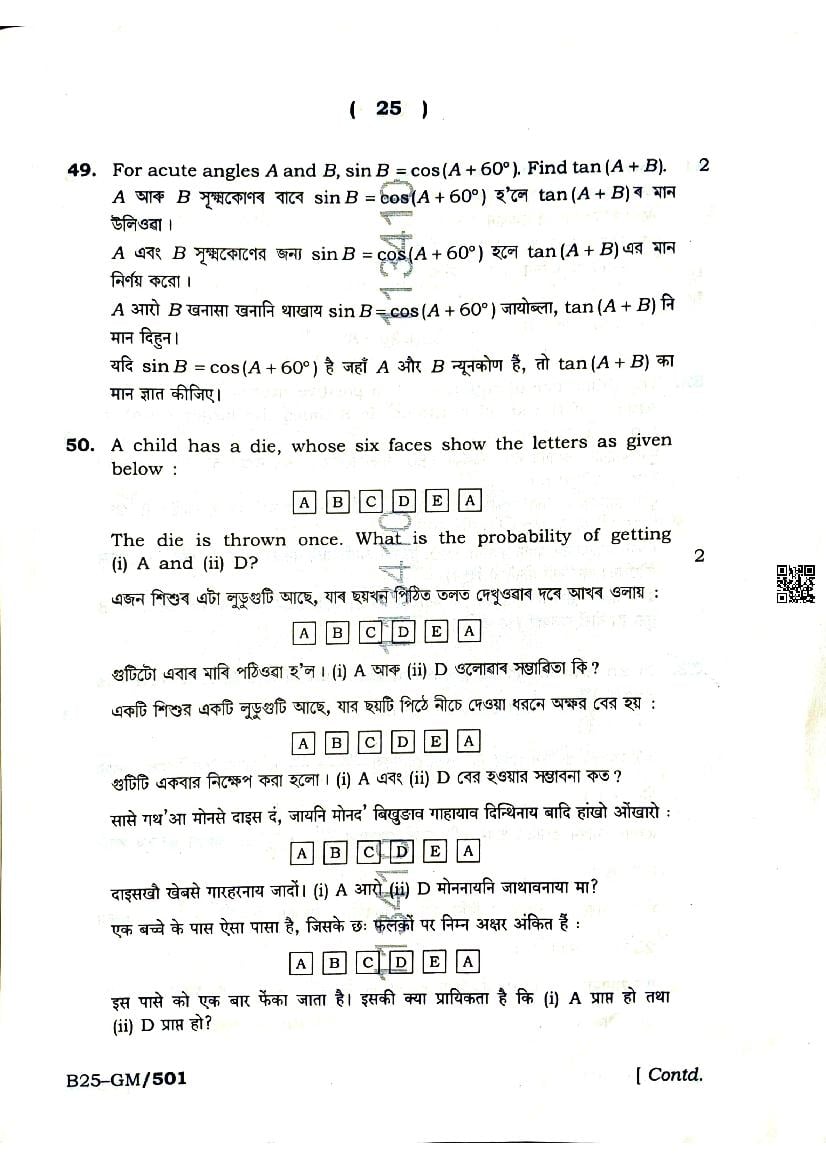 ( 25 )
49. For acute angles A and B, sin B = cos(A + 60°). Find tan (A + B). 2
A আৰু B সূক্ষ্মকোণৰ বাবে sin B = cos(A + 60°) হ’লে tan (A + B) ৰ মান
উলিওৱা ।
A এবং B সূক্ষ্মকোণের জন্য sin B = cos(A + 60°) হলে tan (A + B) এর মান
নির্ণয় করো ।
A आरो B खनासा खनानि थाखाय sin B = cos(A + 60°) जायोब्ला, tan (A + B) नि
मान दिहुन।
यदि sin B = cos(A + 60°) है जहाँ A और B न्यूनकोण हैं, तो tan (A + B) का
मान ज्ञात कीजिए।
50. A child has a die, whose six faces show the letters as given
below :
A B C D E A
The die is thrown once. What is the probability of getting
(i) A and (ii) D? 2
এজন শিশুৰ এটা লুডুগুটি আছে, যাৰ ছয়খন পিঠিত তলত দেখুওৱাৰ দৰে আখৰ ওলায় :
A B C D E A
গুটিটো এবাৰ মাৰি পঠিওৱা হ’ল । (i) A আৰু (ii) D ওলোৱাৰ সম্ভাৱিতা কি ?
একটি শিশুর একটি লুডুগুটি আছে, যার ছয়টি পিঠে নীচে দেওয়া ধরনে অক্ষর বের হয় :
A B C D E A
গুটিটি একবার নিক্ষেপ করা হলো । (i) A এবং (ii) D বের হওয়ার সম্ভাবনা কত ?
सासे गथ’आ मोनसे दाइस दं, जायनि मोनद’ बिखुङाव गाहायाव दिन्थिनाय बादि हांखो ओंखारो :
A B C D E A
दाइसखौ खेबसे गारहरनाय जादों। (i) A आरो (ii) D मोननायनि जाथावनाया मा?
एक बच्चे के पास ऐसा पासा है, जिसके छः फलकों पर निम्न अक्षर अंकित हैं :
A B C D E A
इस पासे को एक बार फेंका जाता है। इसकी क्या प्रायिकता है कि (i) A प्राप्त हो तथा
(ii) D प्राप्त हो?
B25–GM/501 [ Contd.